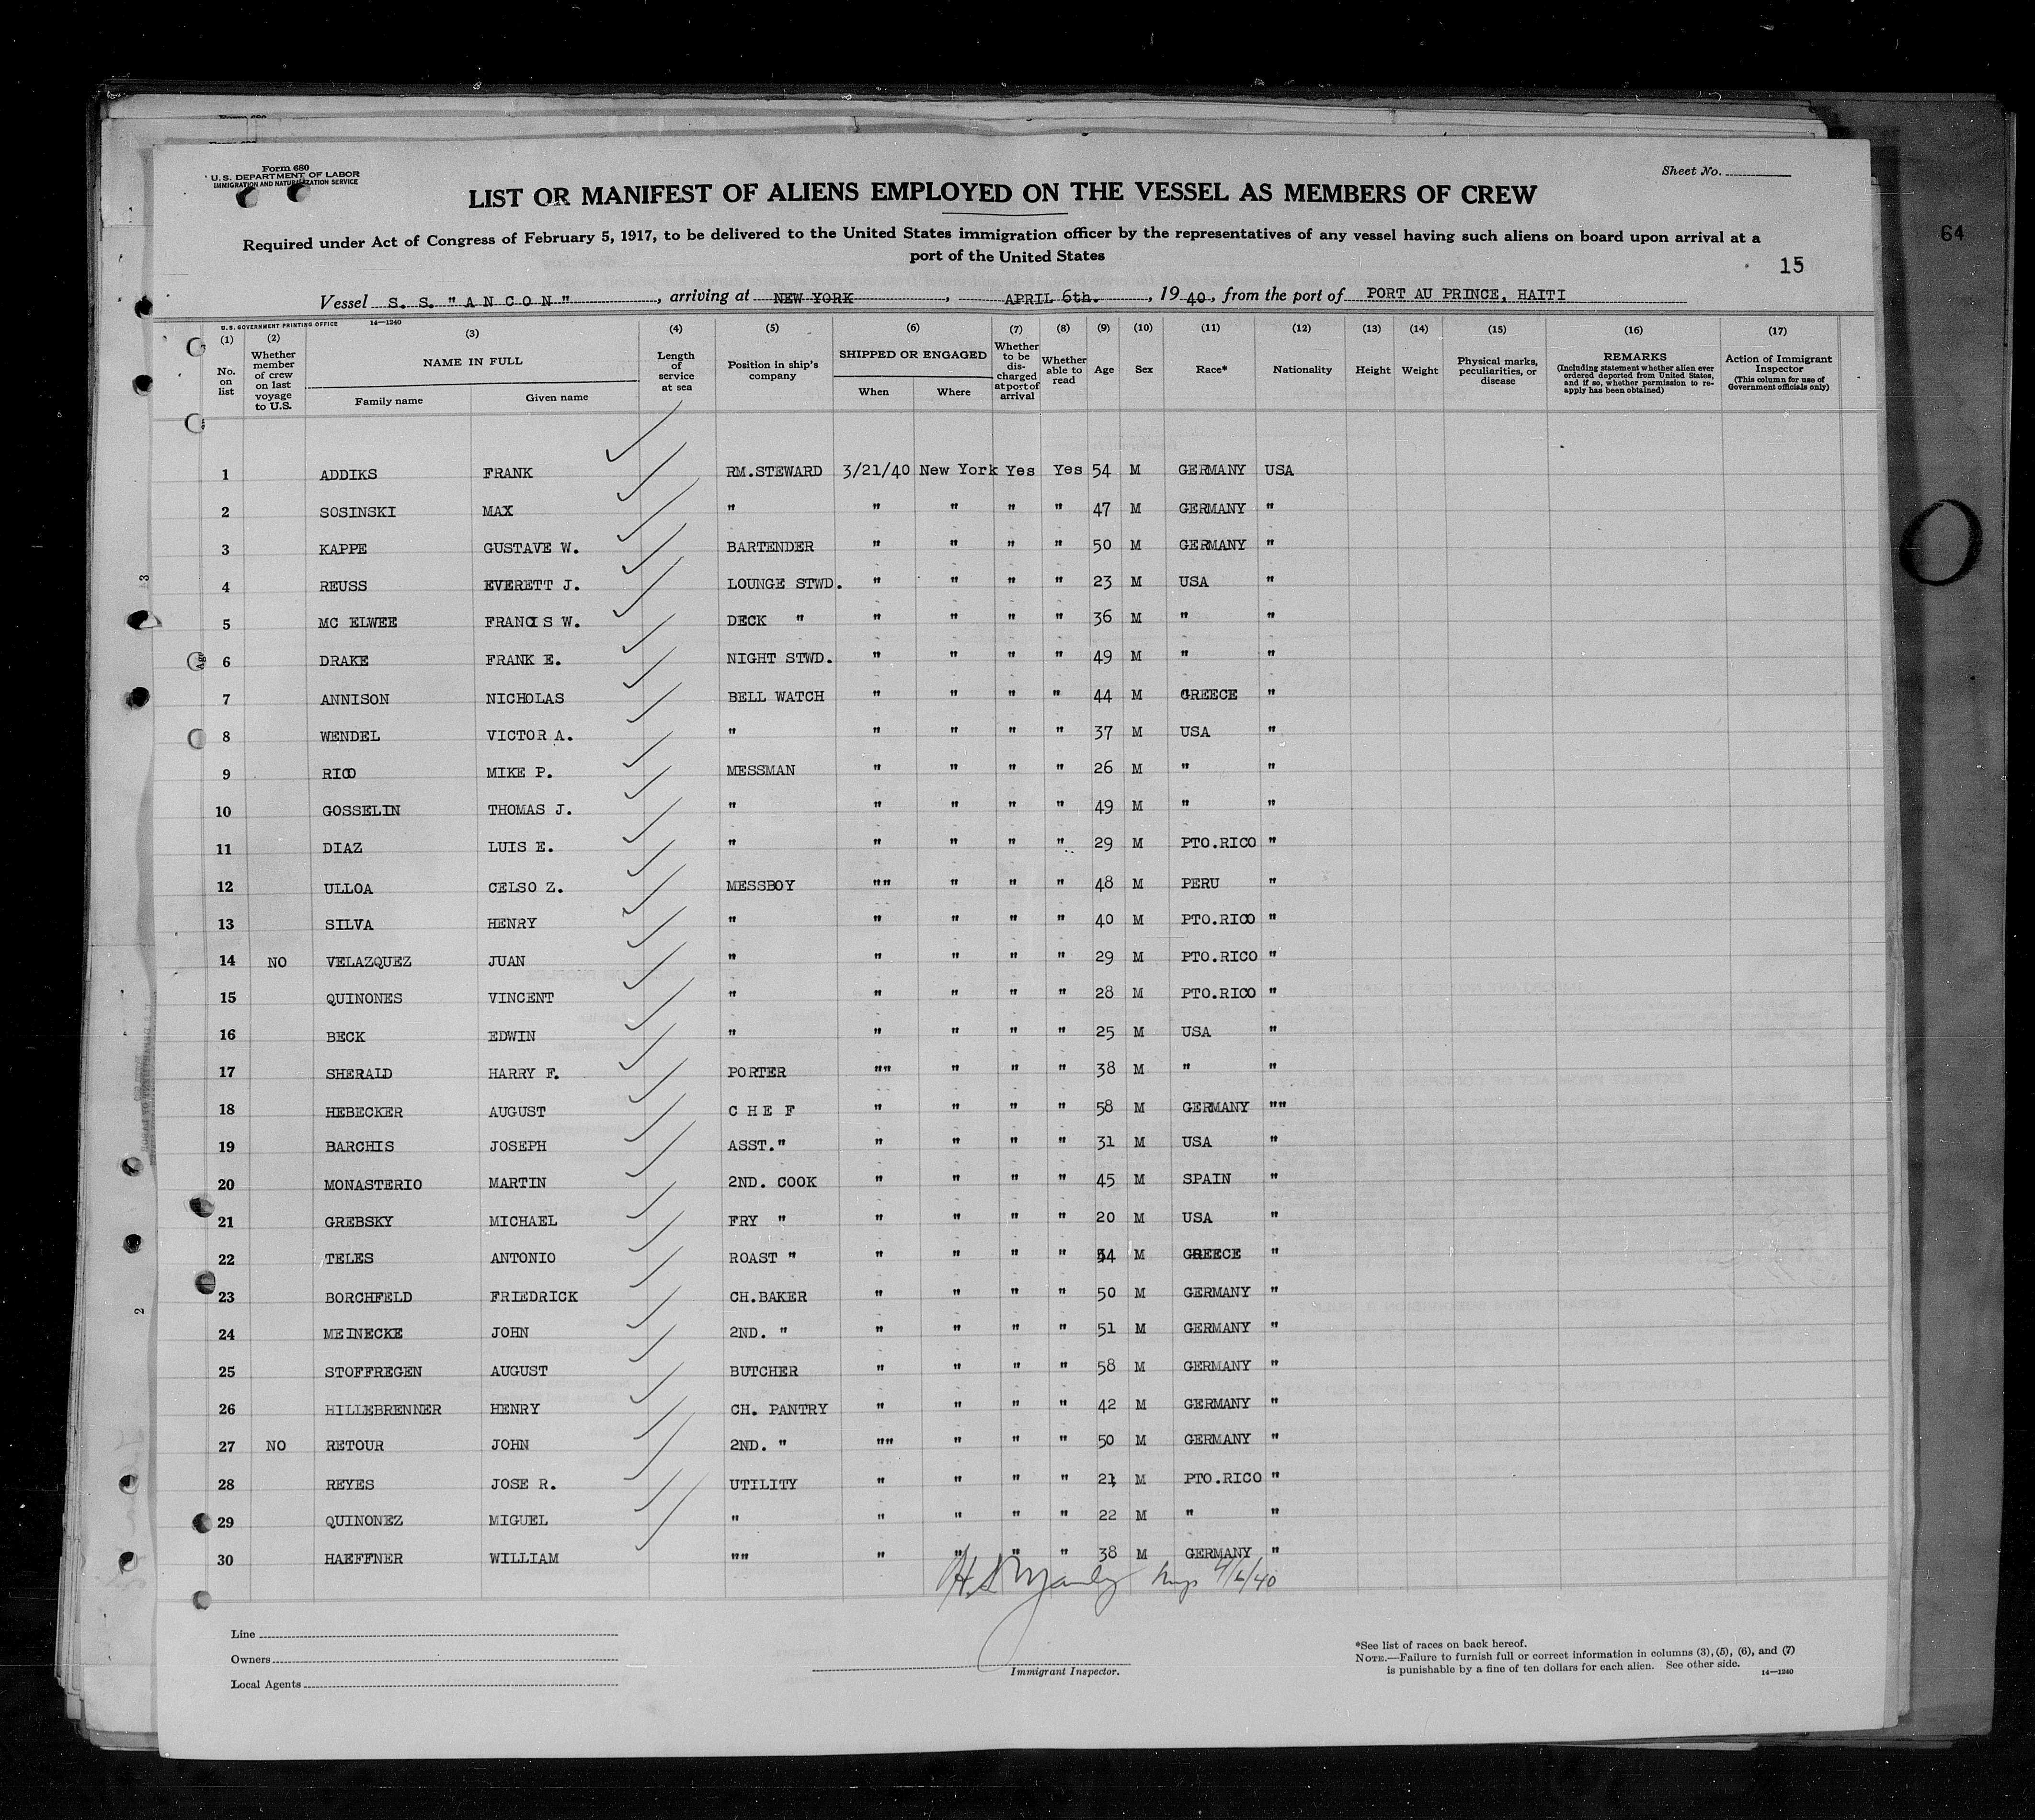 Form 680
U. S. DEPARTMENT OF LABOR
IMMIGRATION AND NATURALIZATION SERVICE
Sheet No.
LIST OR MANIFEST OF ALIENS EMPLOYED ON THE VESSEL AS MEMBERS OF CREW
Required under Act of Congress of February 5, 1917, to be delivered to the United States immigration officer by the representatives of any vessel having such aliens on board upon arrival at a
port of the United States
64
15
Vessel S. S. "A N C O N", arriving at NEW YORK, APRIL 6th., 19 40, from the port of PORT AU PRINCE, HAITI
U. S. GOVERNMENT PRINTING OFFICE 14—1240
(1) No. on list
(2) Whether member of crew on last voyage to U.S.
(3) NAME IN FULL
Family name Given name
(4) Length of service at sea
(5) Position in ship's company
(6) SHIPPED OR ENGAGED
When Where
(7) Whether to be dis-charged at port of arrival
(8) Whether able to read
(9) Age
(10) Sex
(11) Race*
(12) Nationality
(13) Height
(14) Weight
(15) Physical marks, peculiarities, or disease
(16) REMARKS (Including statement whether alien ever ordered deported from United States, and if so, whether permission to re-apply has been obtained)
(17) Action of Immigrant Inspector (This column for use of Government officials only)
1 ADDIKS FRANK RM.STEWARD 3/21/40 New York Yes Yes 54 M GERMANY USA
2 SOSINSKI MAX " " " " " 47 M GERMANY "
3 KAPPE GUSTAVE W. BARTENDER " " " " 50 M GERMANY "
4 REUSS EVERETT J. LOUNGE STWD. " " " " 23 M USA "
5 MC ELWEE FRANCIS W. DECK " " " " " 36 M " "
6 DRAKE FRANK E. NIGHT STWD. " " " " 49 M " "
7 ANNISON NICHOLAS BELL WATCH " " " " 44 M GREECE "
8 WENDEL VICTOR A. " " " " " 37 M USA "
9 RICO MIKE P. MESSMAN " " " " 26 M " "
10 GOSSELIN THOMAS J. " " " " " 49 M " "
11 DIAZ LUIS E. " " " " " 29 M PTO.RICO "
12 ULLOA CELSO Z. MESSBOY "" " " " 48 M PERU "
13 SILVA HENRY " " " " " 40 M PTO.RICO "
14 NO VELAZQUEZ JUAN " " " " " 29 M PTO.RICO "
15 QUINONES VINCENT " " " " " 28 M PTO.RICO "
16 BECK EDWIN " " " " " 25 M USA "
17 SHERALD HARRY F. PORTER "" " " " 38 M " "
18 HEBECKER AUGUST C H E F " " " " 58 M GERMANY ""
19 BARCHIS JOSEPH ASST." " " " " 31 M USA "
20 MONASTERIO MARTIN 2ND. COOK " " " " 45 M SPAIN "
21 GREBSKY MICHAEL FRY " " " " " 20 M USA "
22 TELES ANTONIO ROAST " " " " " 54 M GREECE "
23 BORCHFELD FRIEDRICK CH.BAKER " " " " 50 M GERMANY "
24 MEINECKE JOHN 2ND. " " " " " 51 M GERMANY "
25 STOFFREGEN AUGUST BUTCHER " " " " 58 M GERMANY "
26 HILLEBRENNER HENRY CH. PANTRY " " " " 42 M GERMANY "
27 NO RETOUR JOHN 2ND. " "" " " " 50 M GERMANY "
28 REYES JOSE R. UTILITY " " " " 21 M PTO.RICO "
29 QUINONEZ MIGUEL " " " " " 22 M " "
30 HAEFFNER WILLIAM "" " " " " 38 M GERMANY "
4/6/40
Line
Owners
Local Agents
Immigrant Inspector.
*See list of races on back hereof.
NOTE.—Failure to furnish full or correct information in columns (3), (5), (6), and (7)
is punishable by a fine of ten dollars for each alien. See other side.
14—1240